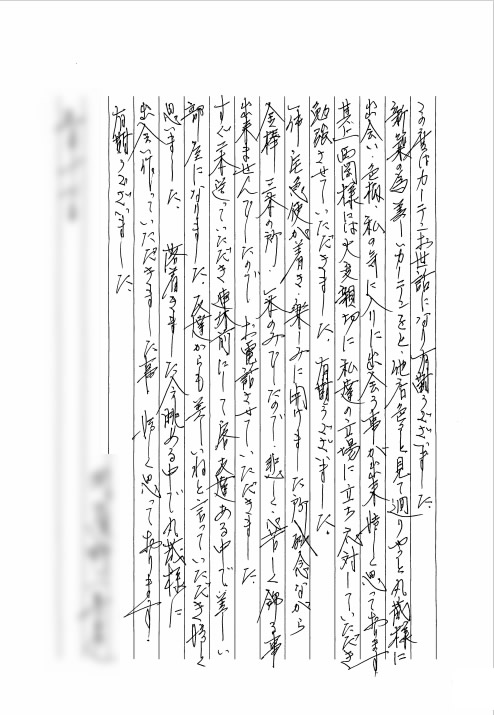 この度はカーテンお世話になり有難うございました。
新築の為美しいカーテンをと、他店色々と見て廻りやっと丸蔵様に
出会い、色柄、私の気に入りに出会う事が出来嬉しく思っております
其に西岡様には大変親切に私達の立場に立ち対していただき
勉強させていただきました。有難うございました。
一昨日宅急便が着き、楽しみに開けました所残念ながら
金棒二本の所、一本のみでしたので、悲しく 飾る事
出来ませんでしたので お電話させていただきました。
すぐ一本送っていただき 連休前にして 友達ある中で美しい
部屋になりました。友達からも美しいねと言っていただき嬉しく
思いました。落着きました 今 眺める中で丸蔵様に
出会い作っていただきました事、嬉しく思っております。
有難うございました。